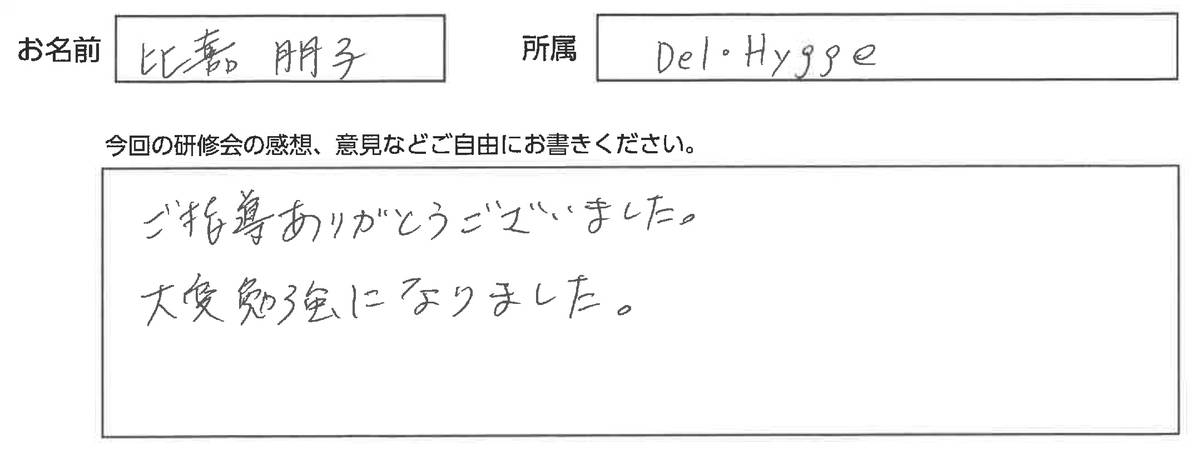 お名前 比嘉 朋子 所属 Del・Hygge
今回の研修会の感想、意見などご自由にお書きください。
ご指導ありがとうございました。
大変勉強になりました。